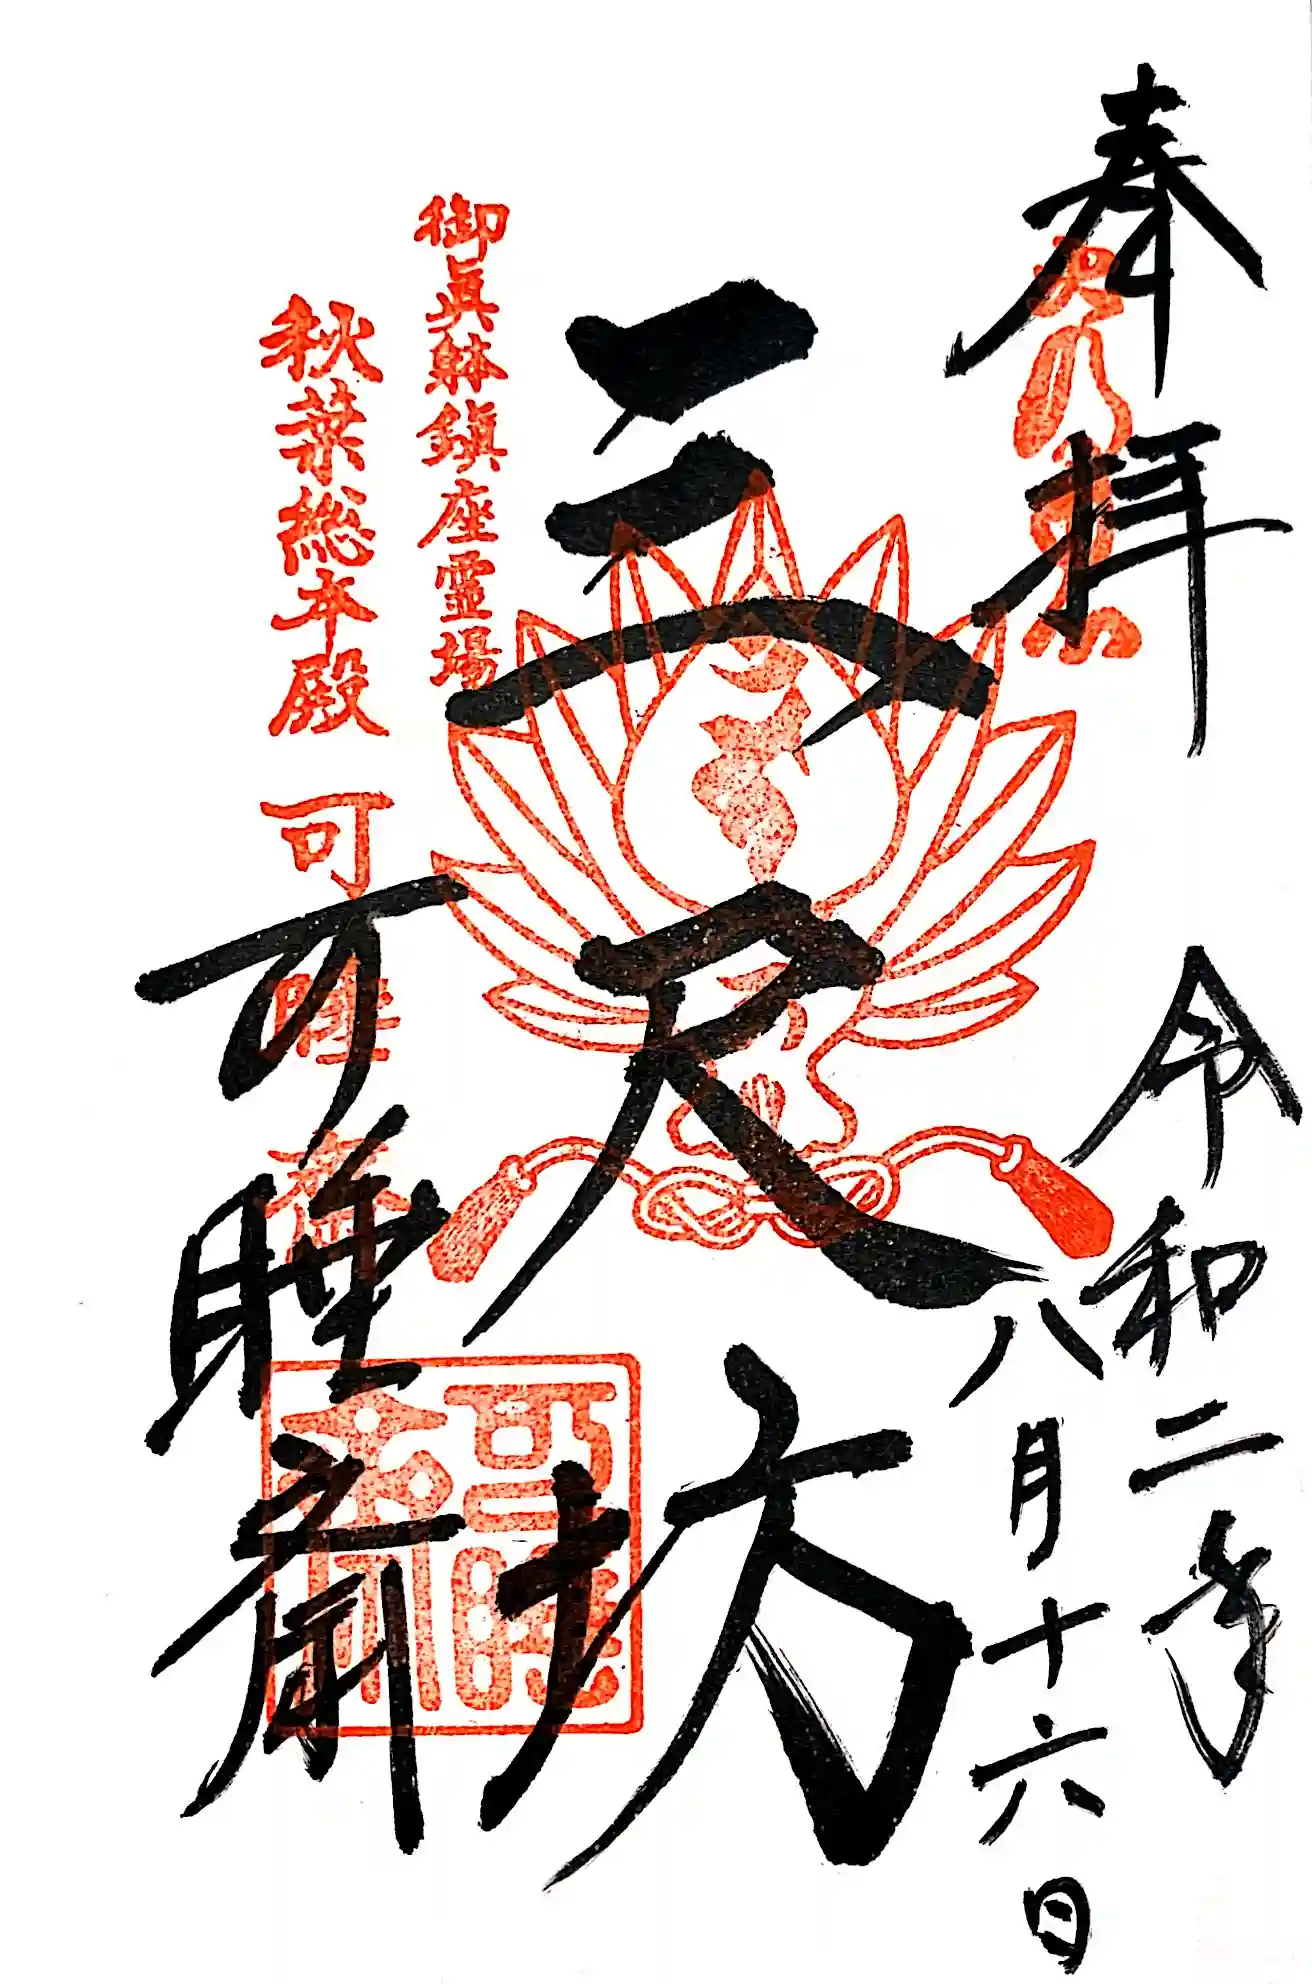 奉拝
令和二年
八月十六日
三尺坊
御眞躰鎮座霊場
秋葉総本殿 可睡斎
可睡斎
可睡齋